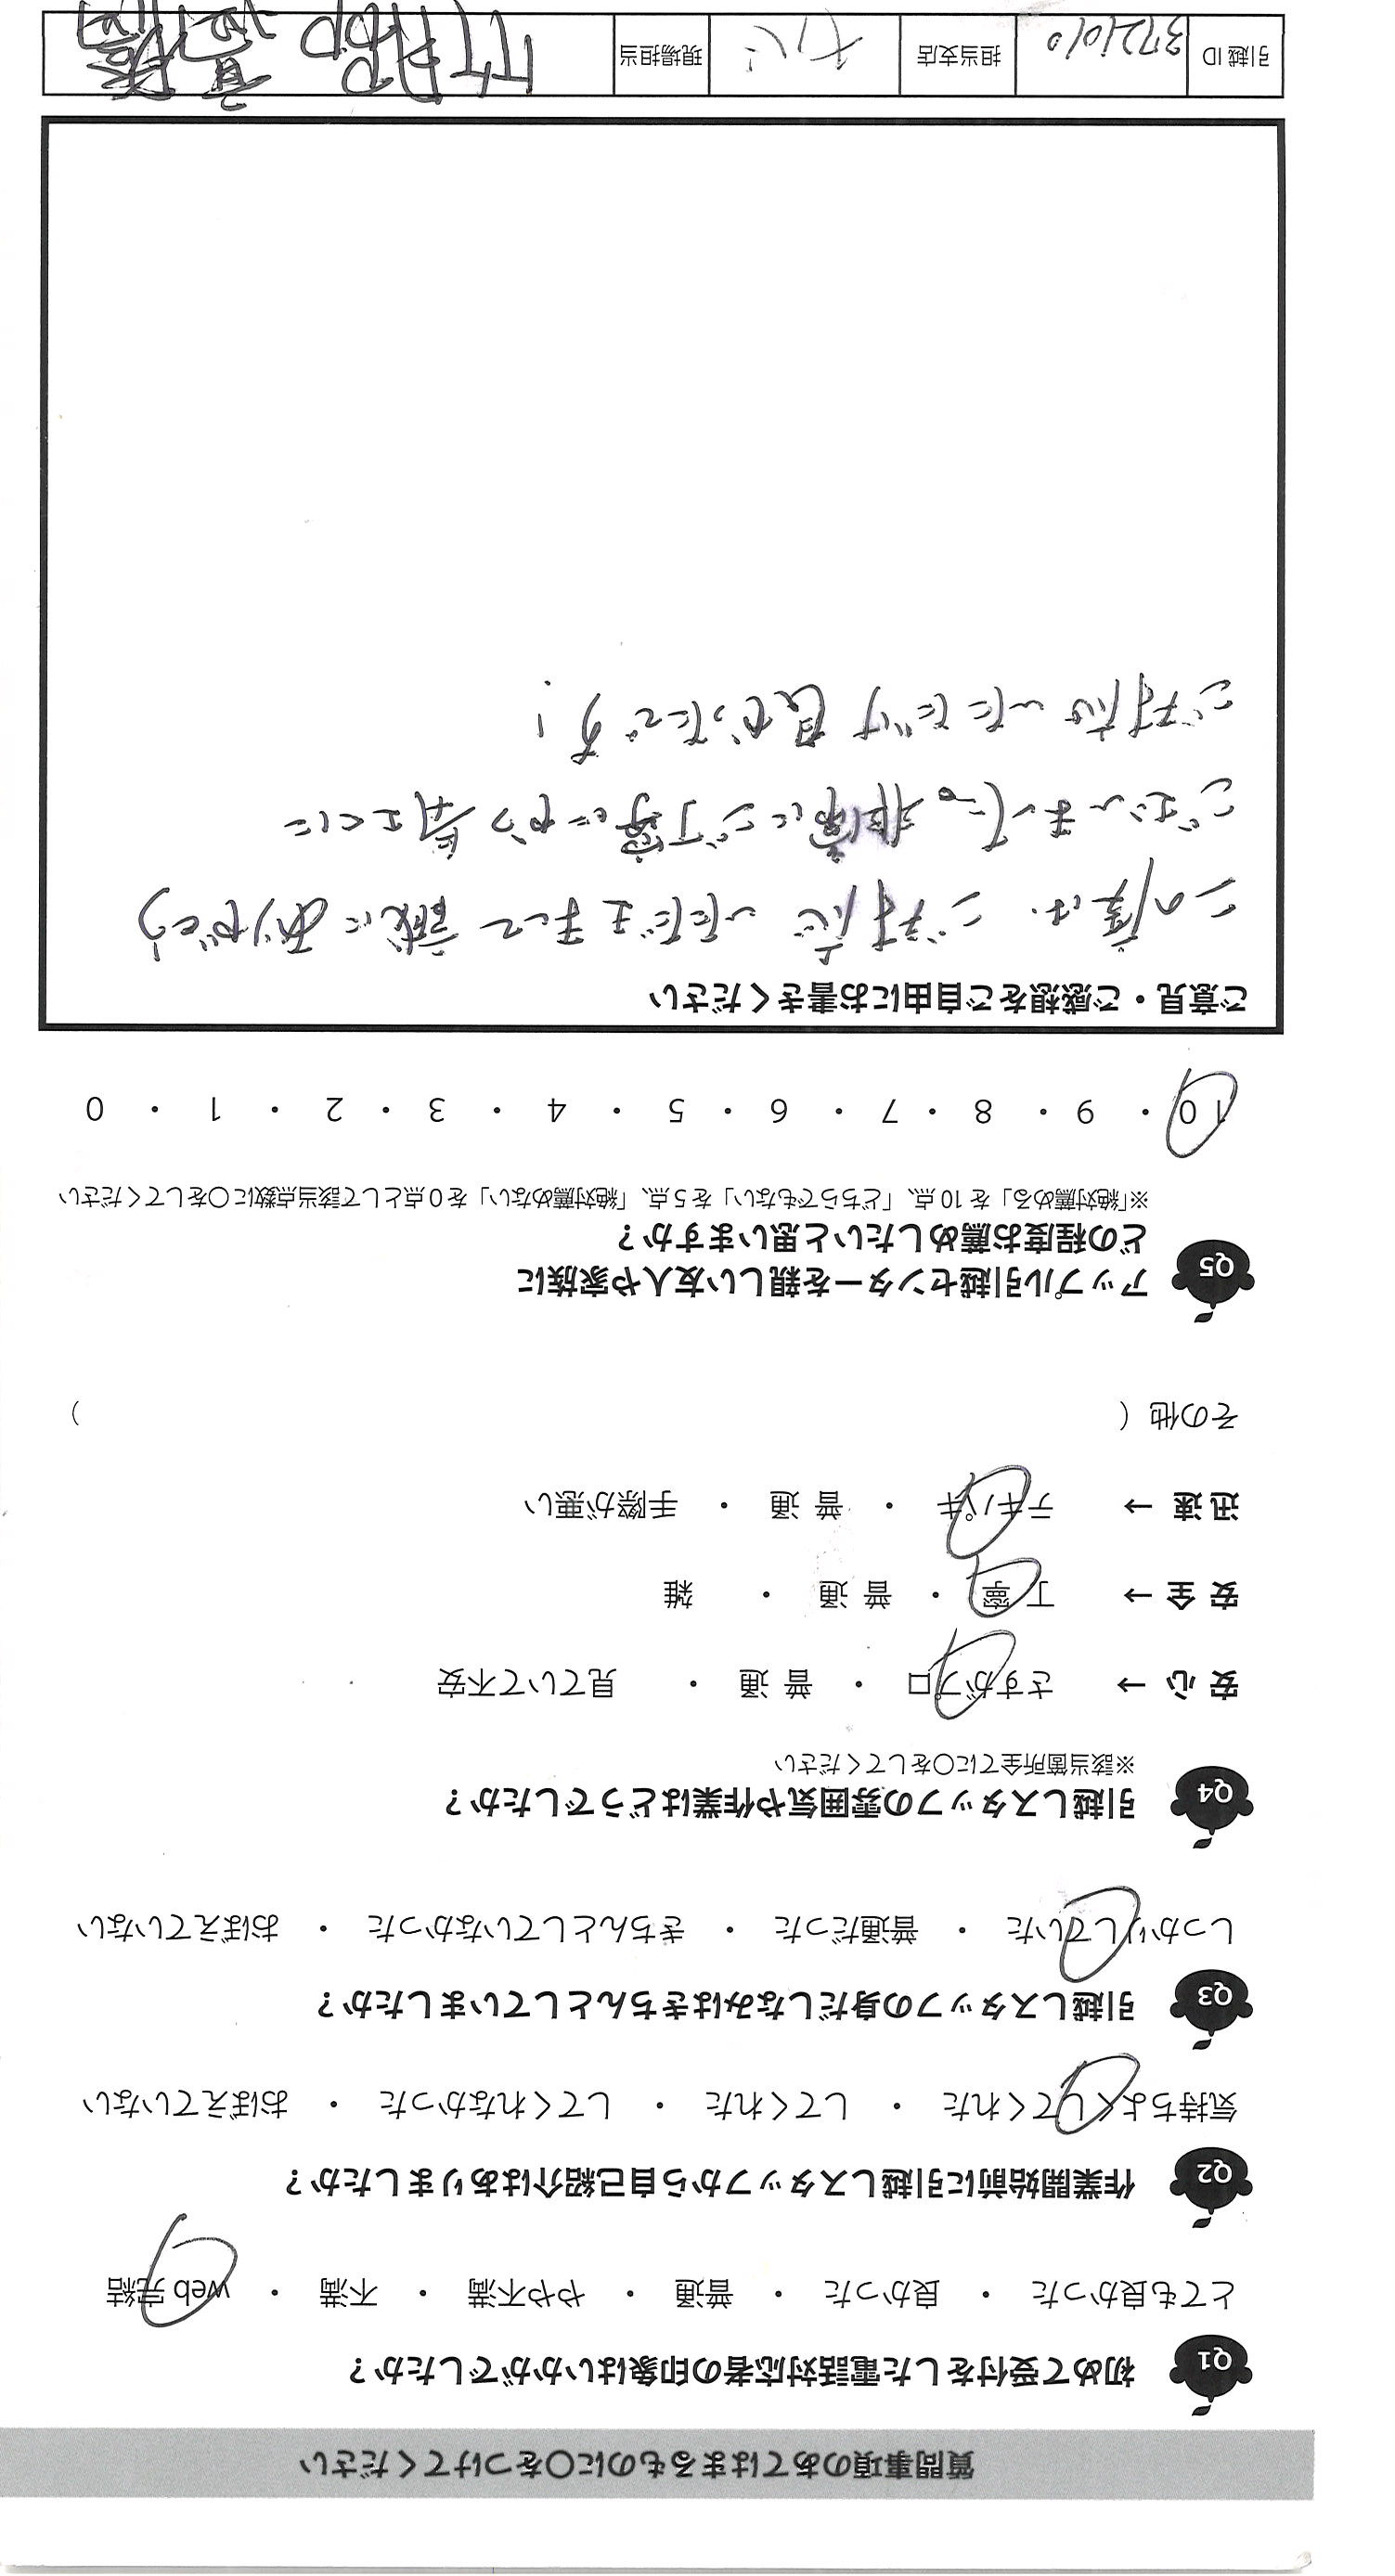 質問事項のあてはまるものに〇をつけてください
Q1 初めて受付をした電話対応者の印象はいかがでしたか？
とても良かった ・ 良かった ・ 普通 ・ やや不満 ・ 不満 ・ web 完結
Q2 作業開始前に引越しスタッフから自己紹介はありましたか？
気持ちよくしてくれた ・ してくれた ・ してくれなかった ・ おぼえていない
Q3 引越しスタッフの身だしなみはきちんとしていましたか？
しっかりしていた ・ 普通だった ・ きちんとしていなかった ・ おぼえていない
Q4 引越しスタッフの雰囲気や作業はどうでしたか？
※該当箇所全てに〇をしてください
安心 → さすがプロ ・ 普通 ・ 見ていて不安
安全 → 丁寧 ・ 普通 ・ 雑
迅速 → テキパキ ・ 普通 ・ 手際が悪い
その他（ ）
Q5 アップル引越センターを親しい友人や家族に
どの程度お薦めしたいと思いますか？
※「絶対薦める」を 10 点、「どちらでもない」を 5 点、「絶対薦めない」を 0 点として該当点数に〇をしてください
10 ・ 9 ・ 8 ・ 7 ・ 6 ・ 5 ・ 4 ・ 3 ・ 2 ・ 1 ・ 0
ご意見・ご感想をご自由にお書きください
この度は、ご対応いただきまして誠にありがとう
ございました。非常にご丁寧にかつ気さくに
ご対応いただけ良かったです！
引越 ID 3721010 担当支店 現場担当 竹 阿部